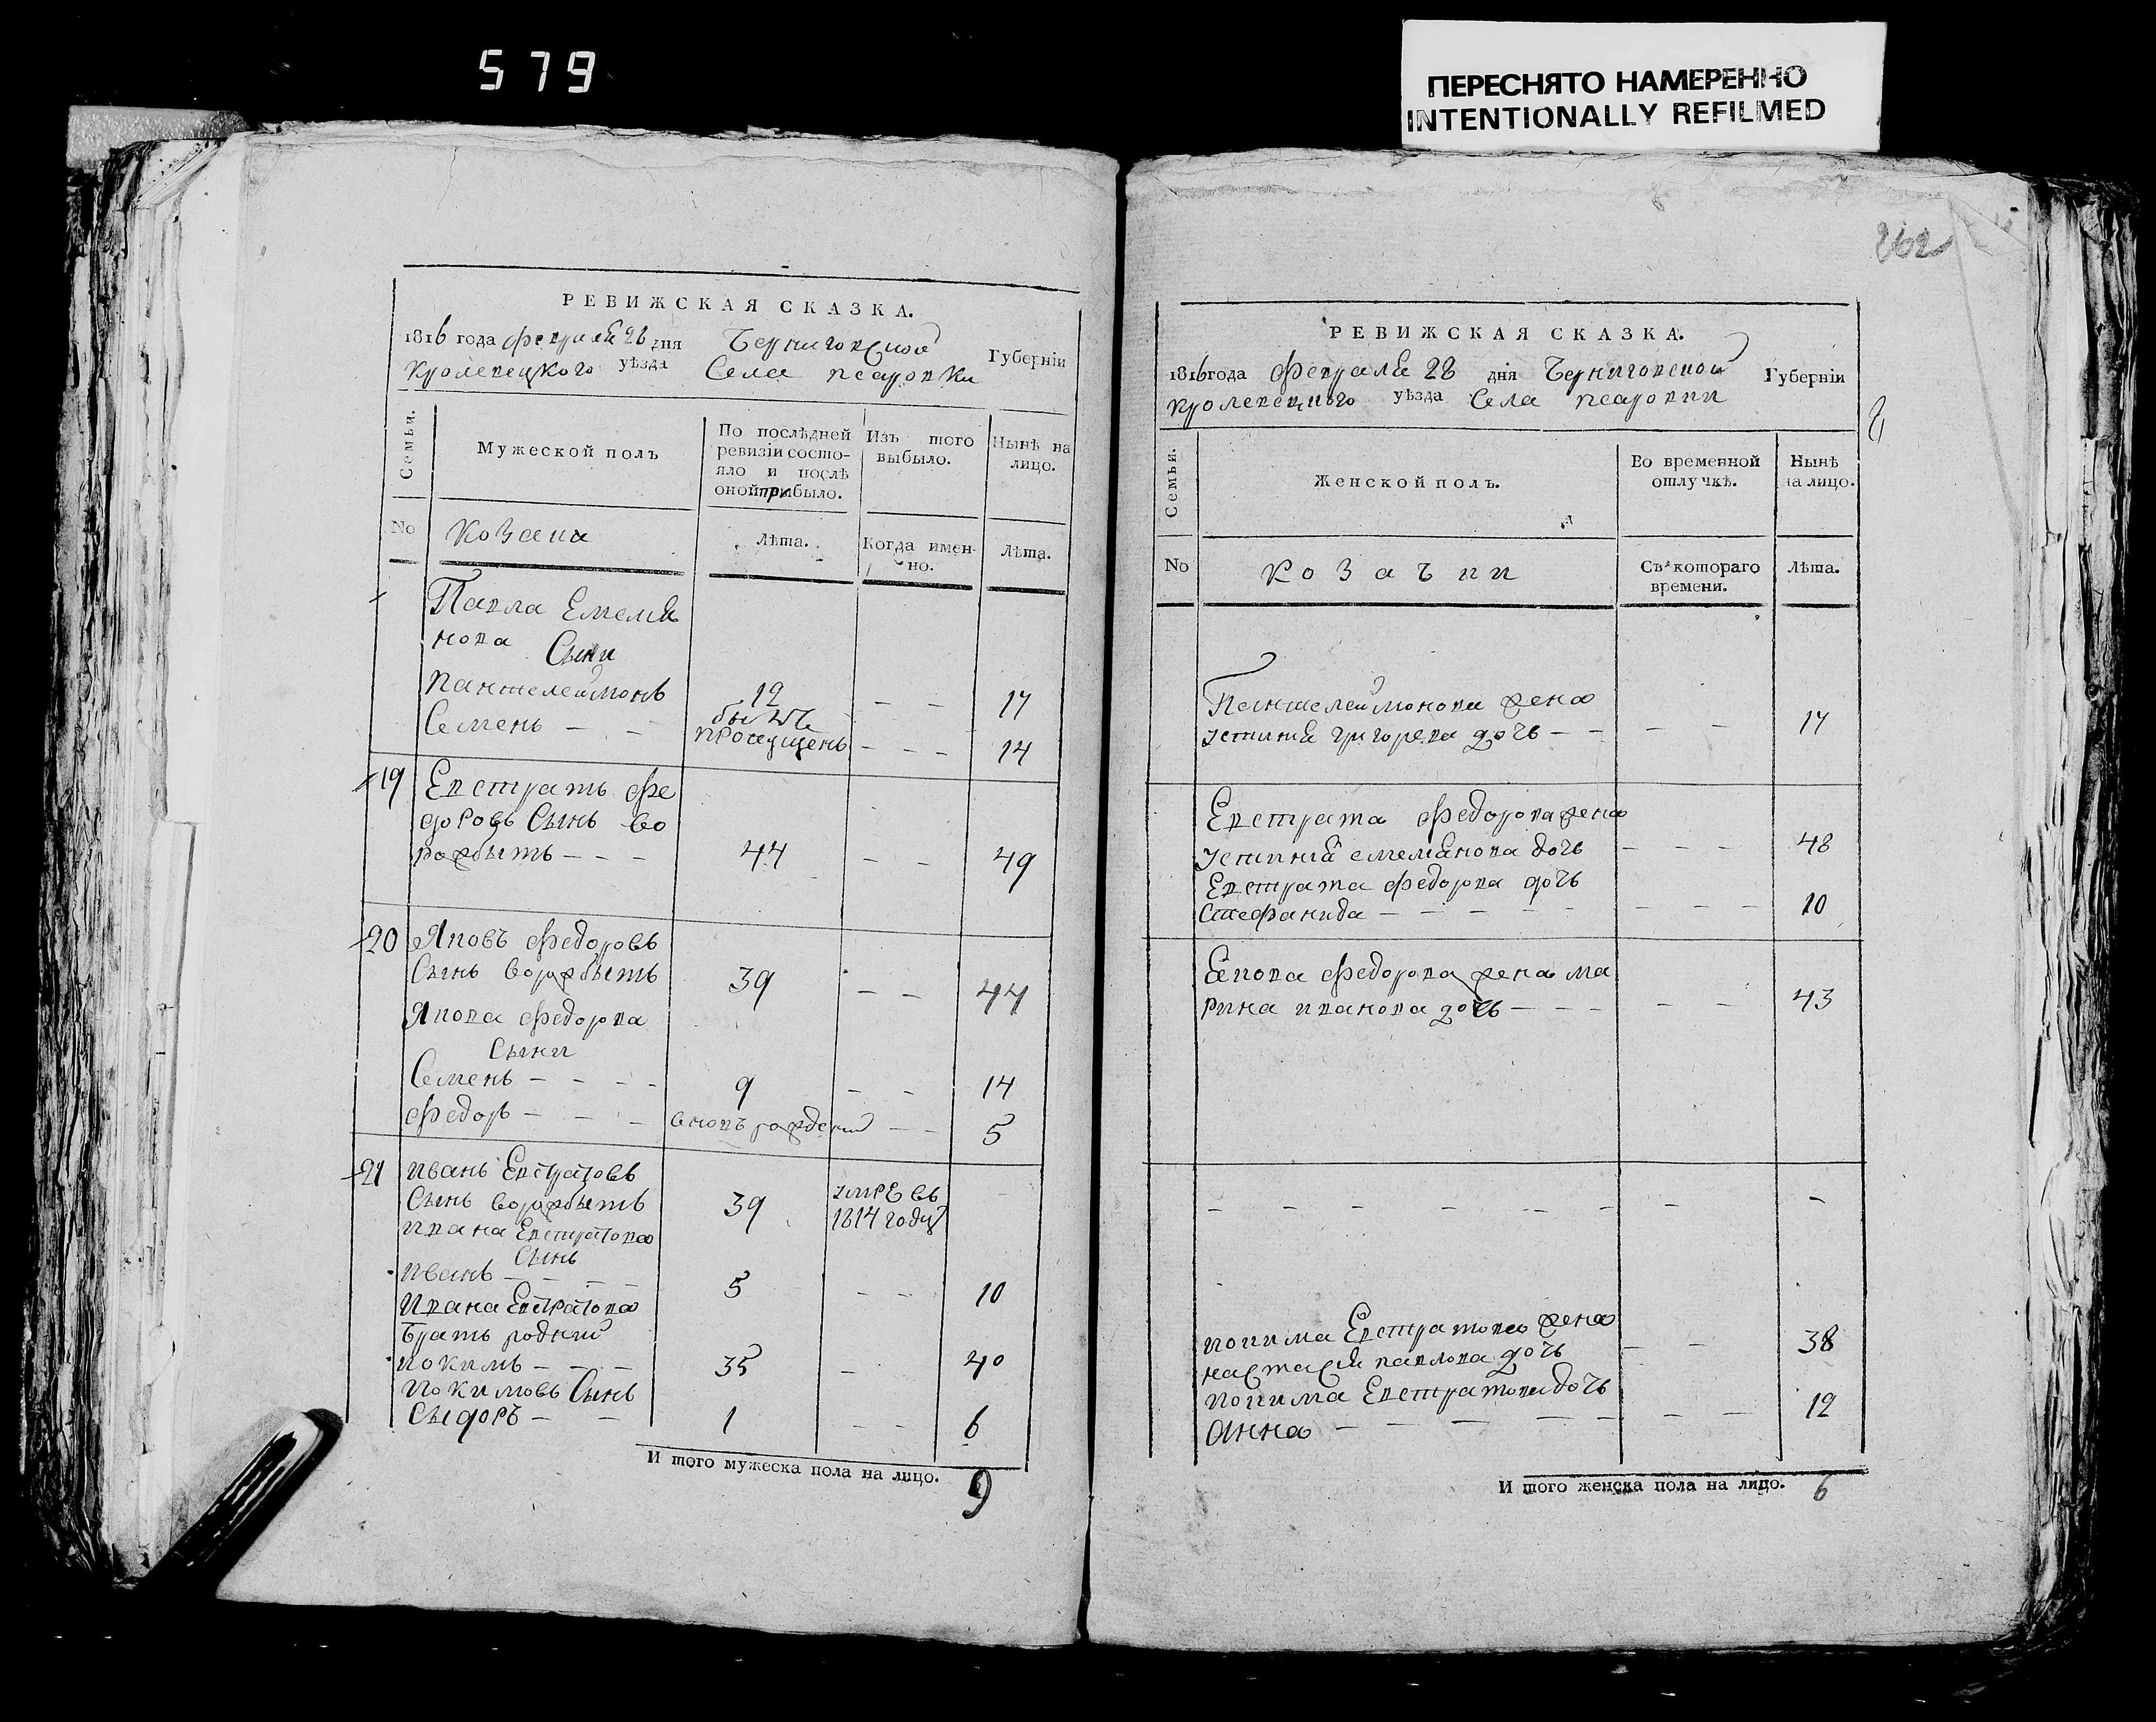 579
ПЕРЕСНЯТО НАМЕРЕННО
INTENTIONALLY REFILMED
262
РЕВИЖСКАЯ СКАЗКА.
1816 года февраля 28 дня Черниговской Губерніи
Кролевецкого уѣзда Села
Семьи.
Мужеской полъ
По послѣдней ревизіи состояло и послѣ оной прибыло.
Изъ того выбыло.
Нынѣ на лицо.
No
Козаки
Лѣта.
Когда именно.
Лѣта.
Павла Емелья
нова Сыни
Пантелеймонъ 12 — — 17
Семенъ — — былъ пропущенъ — — — 14
19 Евстратъ Фе
доровъ Сынъ Во
рожбытъ — — — 44 — — 49
20 Яковъ Федоровъ
Сынъ Ворожбытъ 39 — — 44
Якова Федорова
Сыни
Семенъ — — — — 9 — — 14
Федоръ — — — вновь рожденій — — 5
21 Иванъ Евстратовъ
Сынъ Ворожбытъ 39 умре въ 1814 году —
Ивана Евстратова
Сынъ
Иванъ — — — — 5 — — 10
Ивана Евстратова
братъ родний
Иокимъ — — — 35 — 40
Иокимовъ Сынъ
Сыдоръ — — 1 — — 6
И того мужеска пола на лицо. 9
РЕВИЖСКАЯ СКАЗКА.
1816 года Февраля 28 дня Черниговской Губерніи
Кролевецкого уѣзда Села
Семьи.
Женской полъ.
Во временной отлучкѣ.
Нынѣ на лицо.
No
Козачки
Съ котораго времени.
Лѣта.
Пантелеймонова жена
Устинья григорева дочь — — — — 17
Евстрата Федорова жена
Устинья емельянова дочь — — — 48
Евстрата Федорова дочь
Стефанида — — — — — — — — 10
Якова Федорова жена ма
рина иванова дочь — — — — — 43
— — — — — — — — —
Иокима Евстратова жена
настасья павлова дочь — — 38
Иокима Евстратова дочь
Анна — — — — — — — 12
И того женска пола на лицо. 6